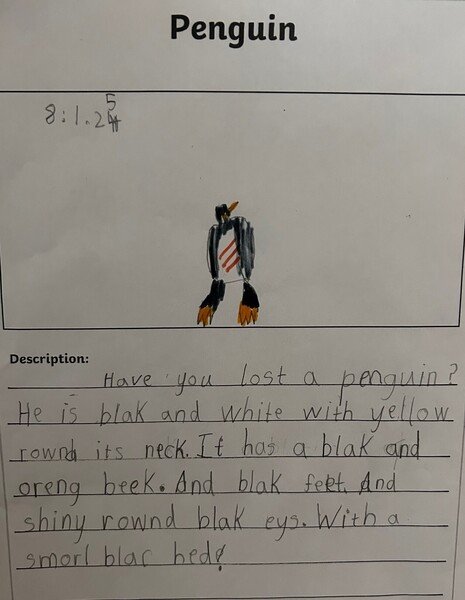 Penguin
8:1.25
Description:
Have you lost a penguin?
He is blak and white with yellow
rownd its neck. It has a blak and
oreng beek. And blak feet. And
shiny rownd blak eys. With a
smorl blac hed!